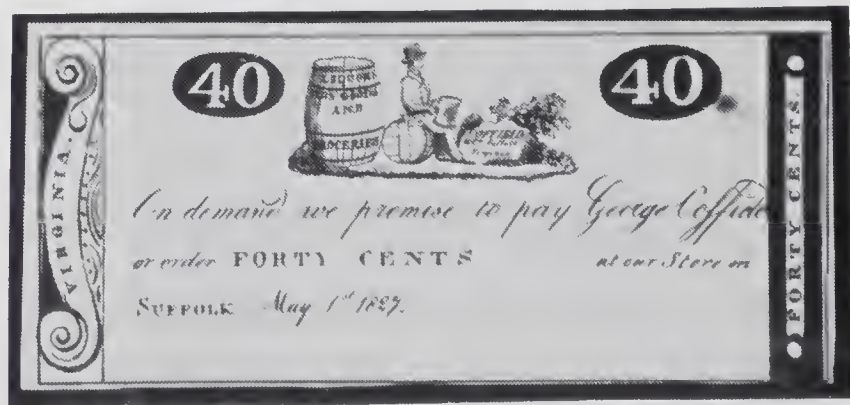 VIRGINIA.
40
40
LIQUORS
AND
GROCERIES
On demand we promise to pay George Coffield
or order FORTY CENTS at our Store in
SUFFOLK May 1st 1827.
FORTY CENTS.